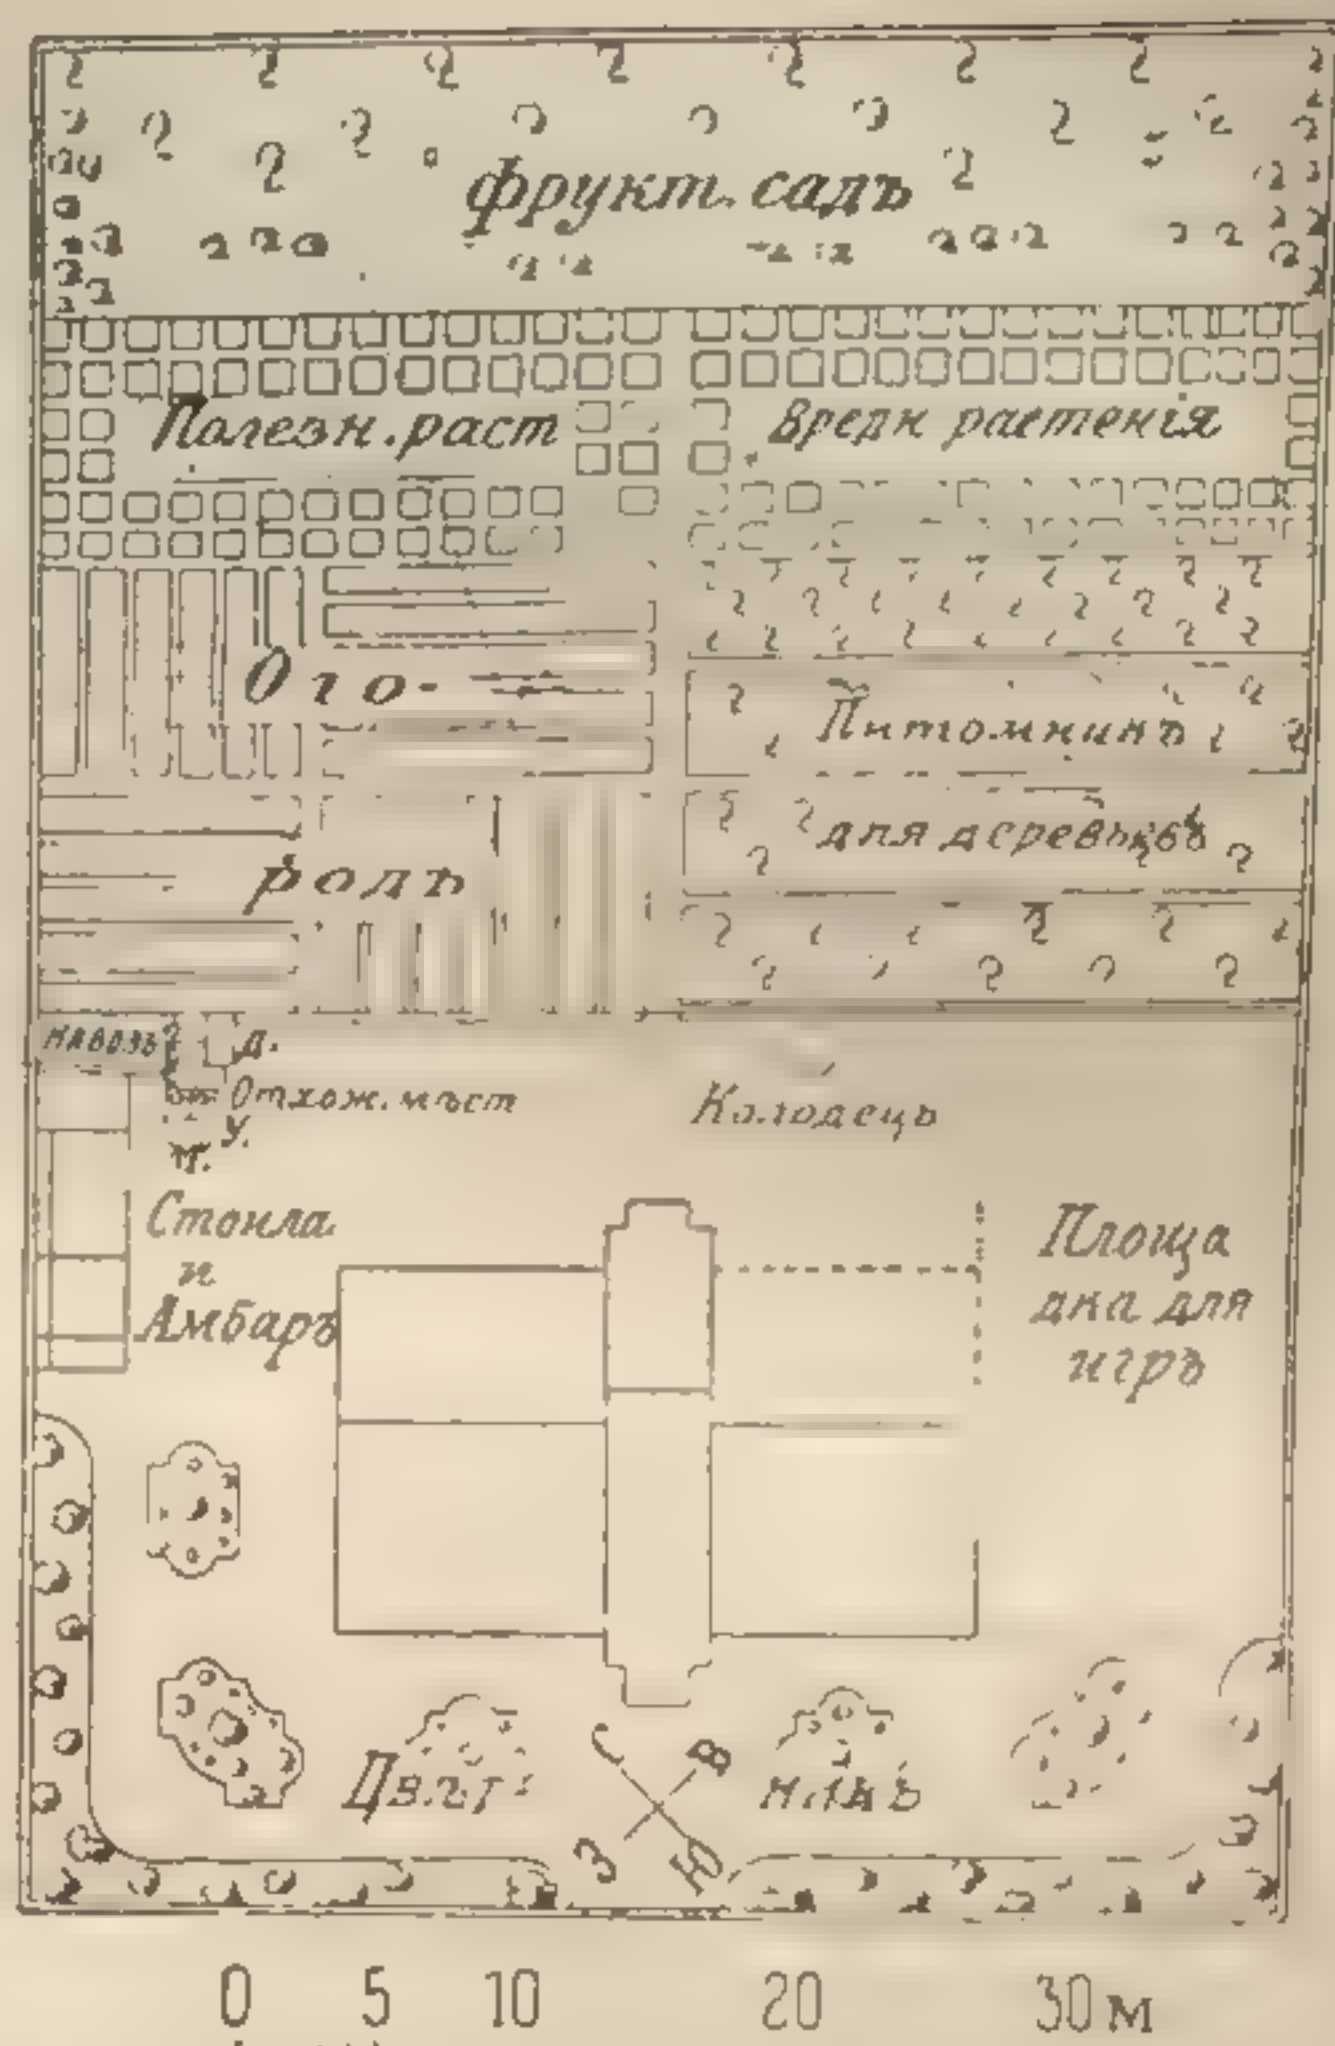 фрукт. садъ
Полезн. раст
Вредн растенiя
Ого-
родъ
Питомникъ
для деревьевъ
навозъ
Д.
Отхож. мѣст
У.
М.
Колодецъ
Стойла
и
Амбаръ
Площа
дка для
игръ
Цвѣт
никъ
С
В
З
Ю
0 5 10 20 30 м